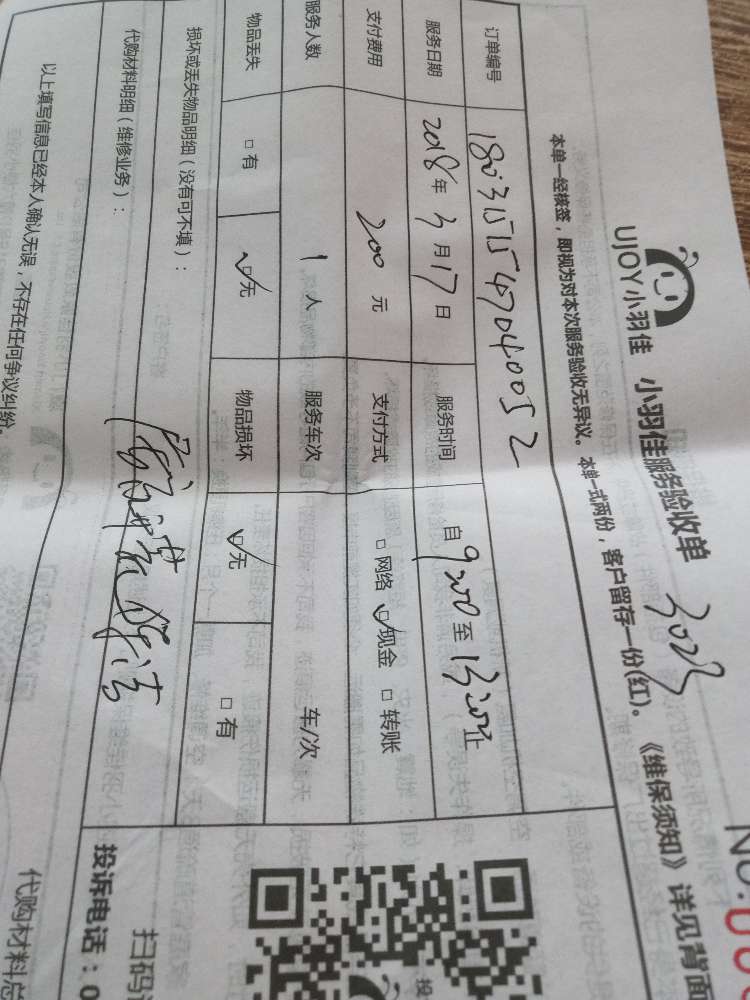 No.
UJOY小羽佳 小羽佳服务验收单
3023
本单一经核签，即视为对本次服务验收无异议。本单一式两份，客户留存一份(红)。《维保须知》详见背面
订单编号
服务日期 2018年3月17日 服务时间 自9:00至13:00止
支付费用 200元 支付方式 □网络 ☑现金 □转账
服务人数 1人 服务车次 车/次
物品丢失 □有 ☑无 物品损坏 ☑无 □有
损坏或丢失物品明细（没有可不填）：
代购材料明细（维修业务）：
以上填写信息已经本人确认无误，不存在任何争议纠纷。
扫码
投诉电话：0
代购材料总